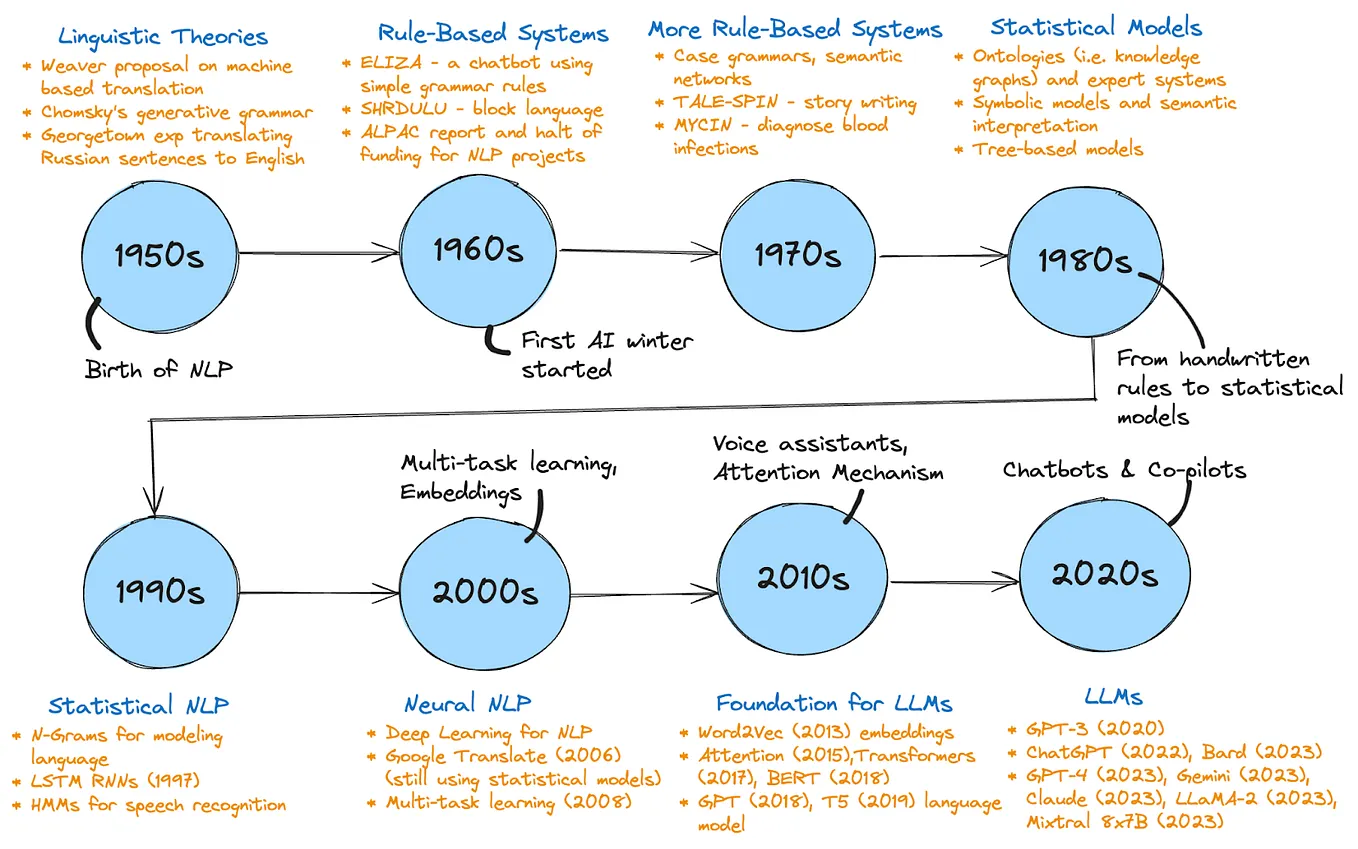 Linguistic Theories
* Weaver proposal on machine
based translation
* Chomsky's generative grammar
* Georgetown exp translating
Russian sentences to English
Rule-Based Systems
* ELIZA - a chatbot using
simple grammar rules
* SHRDULU - block language
* ALPAC report and halt of
funding for NLP projects
More Rule-Based Systems
* Case grammars, semantic
networks
* TALE-SPIN - story writing
* MYCIN - diagnose blood
infections
Statistical Models
* Ontologies (i.e. knowledge
graphs) and expert systems
* Symbolic models and semantic
interpretation
* Tree-based models
1950s
1960s
1970s
1980s
Birth of NLP
First AI winter
started
From handwritten
rules to statistical
models
Multi-task learning,
Embeddings
Voice assistants,
Attention Mechanism
Chatbots & Co-pilots
1990s
2000s
2010s
2020s
Statistical NLP
* N-Grams for modeling
language
* LSTM RNNs (1997)
* HMMs for speech recognition
Neural NLP
* Deep Learning for NLP
* Google Translate (2006)
(still using statistical models)
* Multi-task learning (2008)
Foundation for LLMs
* Word2Vec (2013) embeddings
* Attention (2015),Transformers
(2017), BERT (2018)
* GPT (2018), T5 (2019) language
model
LLMs
* GPT-3 (2020)
* ChatGPT (2022), Bard (2023)
* GPT-4 (2023), Gemini (2023),
Claude (2023), LLaMA-2 (2023),
Mixtral 8x7B (2023)